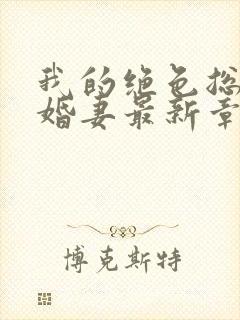 我的绝色总
婚妻最新章
博克斯特